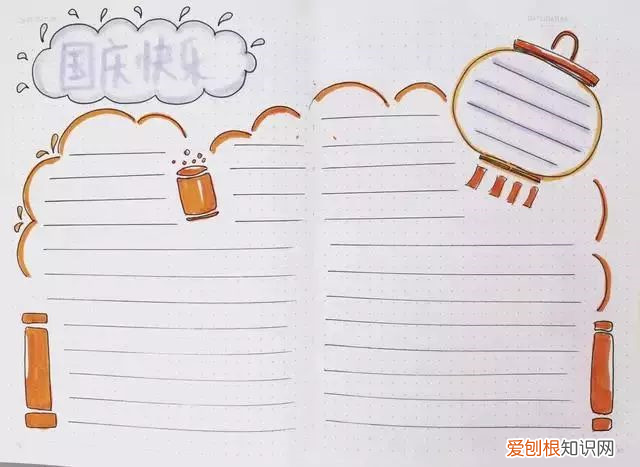 国庆快乐
爱刨根知识网